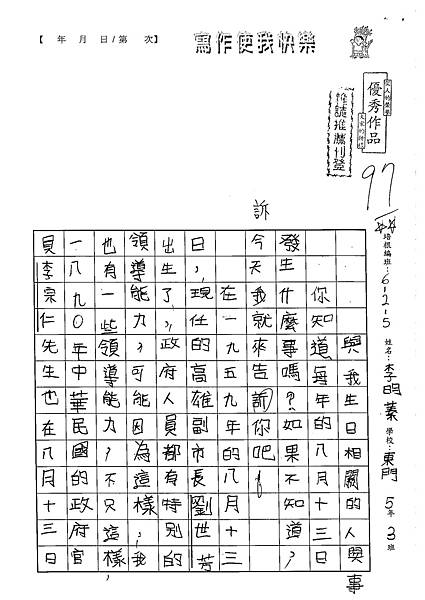 【　年　月　日/第　次】
寫作使我快樂
優秀作品
雜誌推薦刊登
97
培根編班：6-2-5 姓名：李明蓁 學校：東門 5年3班
訴
與我生日相關的人與事
你知道每年的八月十三日
發生什麼事嗎？如果不知道，
今天我就來告訴你吧！
在一九五九年的八月十三
日，現任的高雄副市長劉世芳
出生了，政府人員都有特別的
領導能力，可能因為這樣，我
也有一些領導能力，不只這樣，
一八九０年中華民國的政府官
員李宗仁先生也在八月十三日